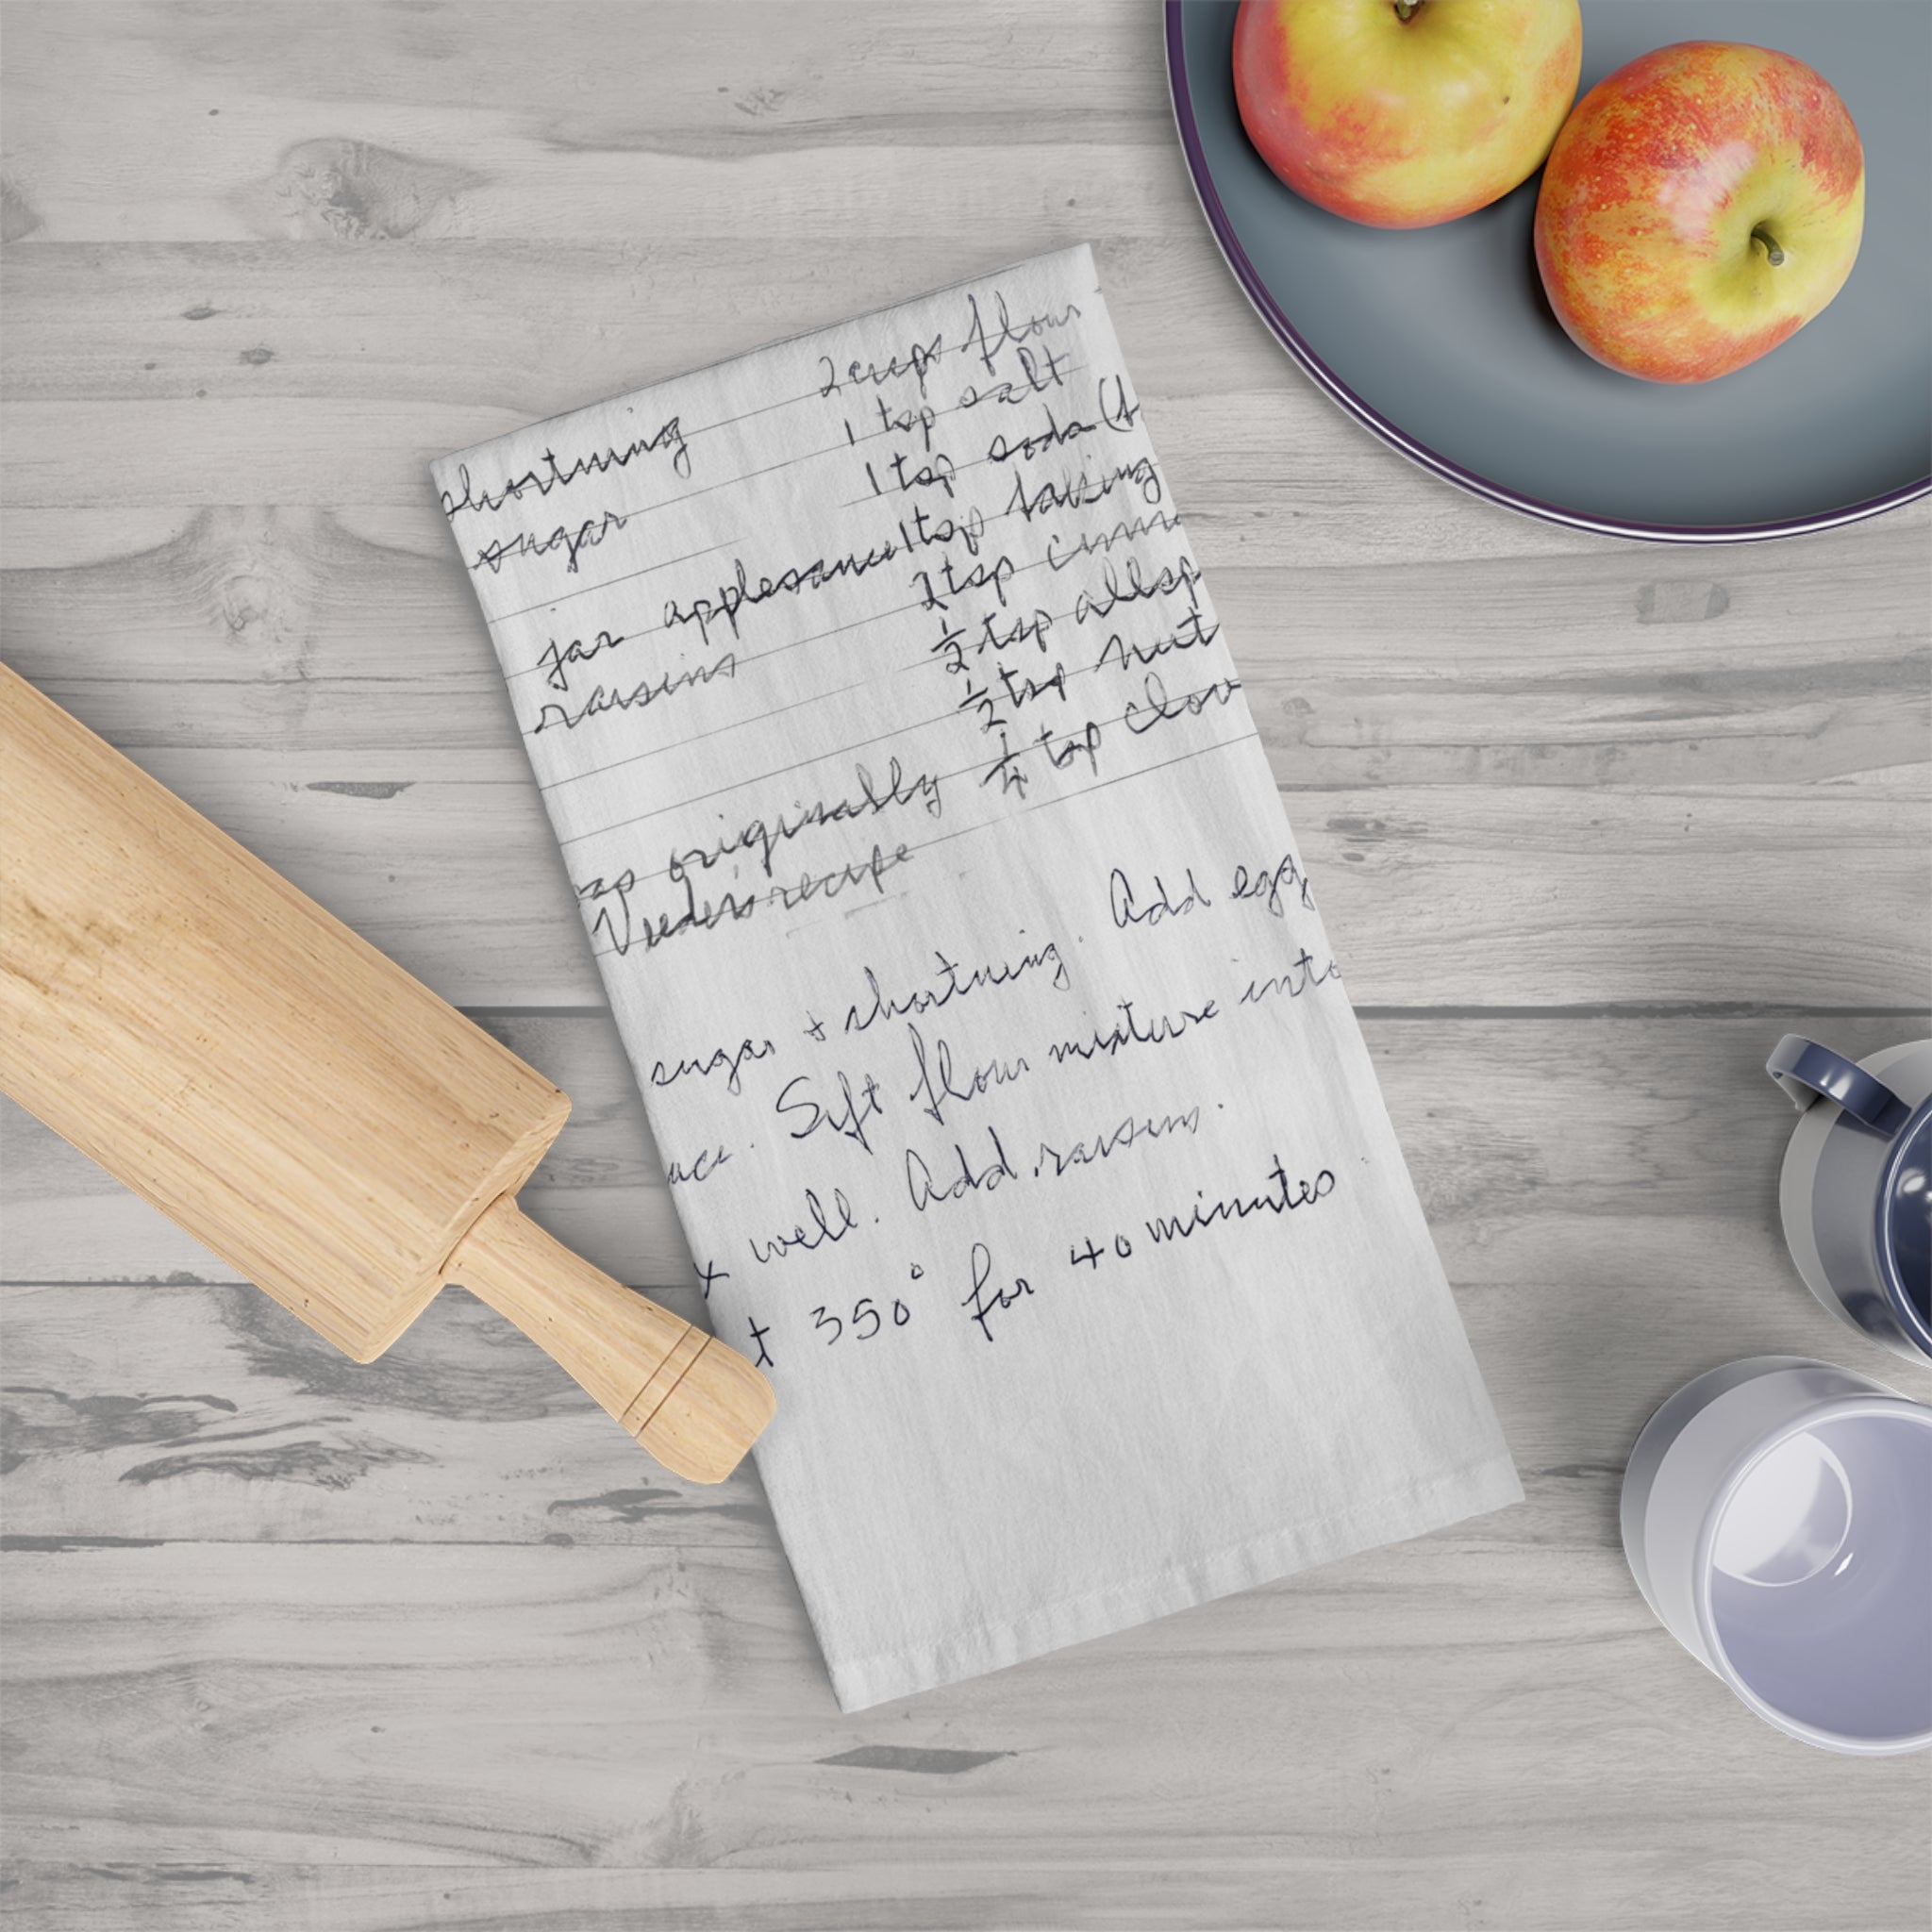 2 cups flour
shortning 1 tsp salt
sugar 1 tsp soda (
jar applesauce 1 tsp baking
raisins 2 tsp cinn
½ tsp allsp
½ tsp nut
as originally ¼ tsp clov
recipe
sugar + shortning. Add egg
uce. Sift flour mixture into
x well. Add raisins.
t 350° for 40 minutes